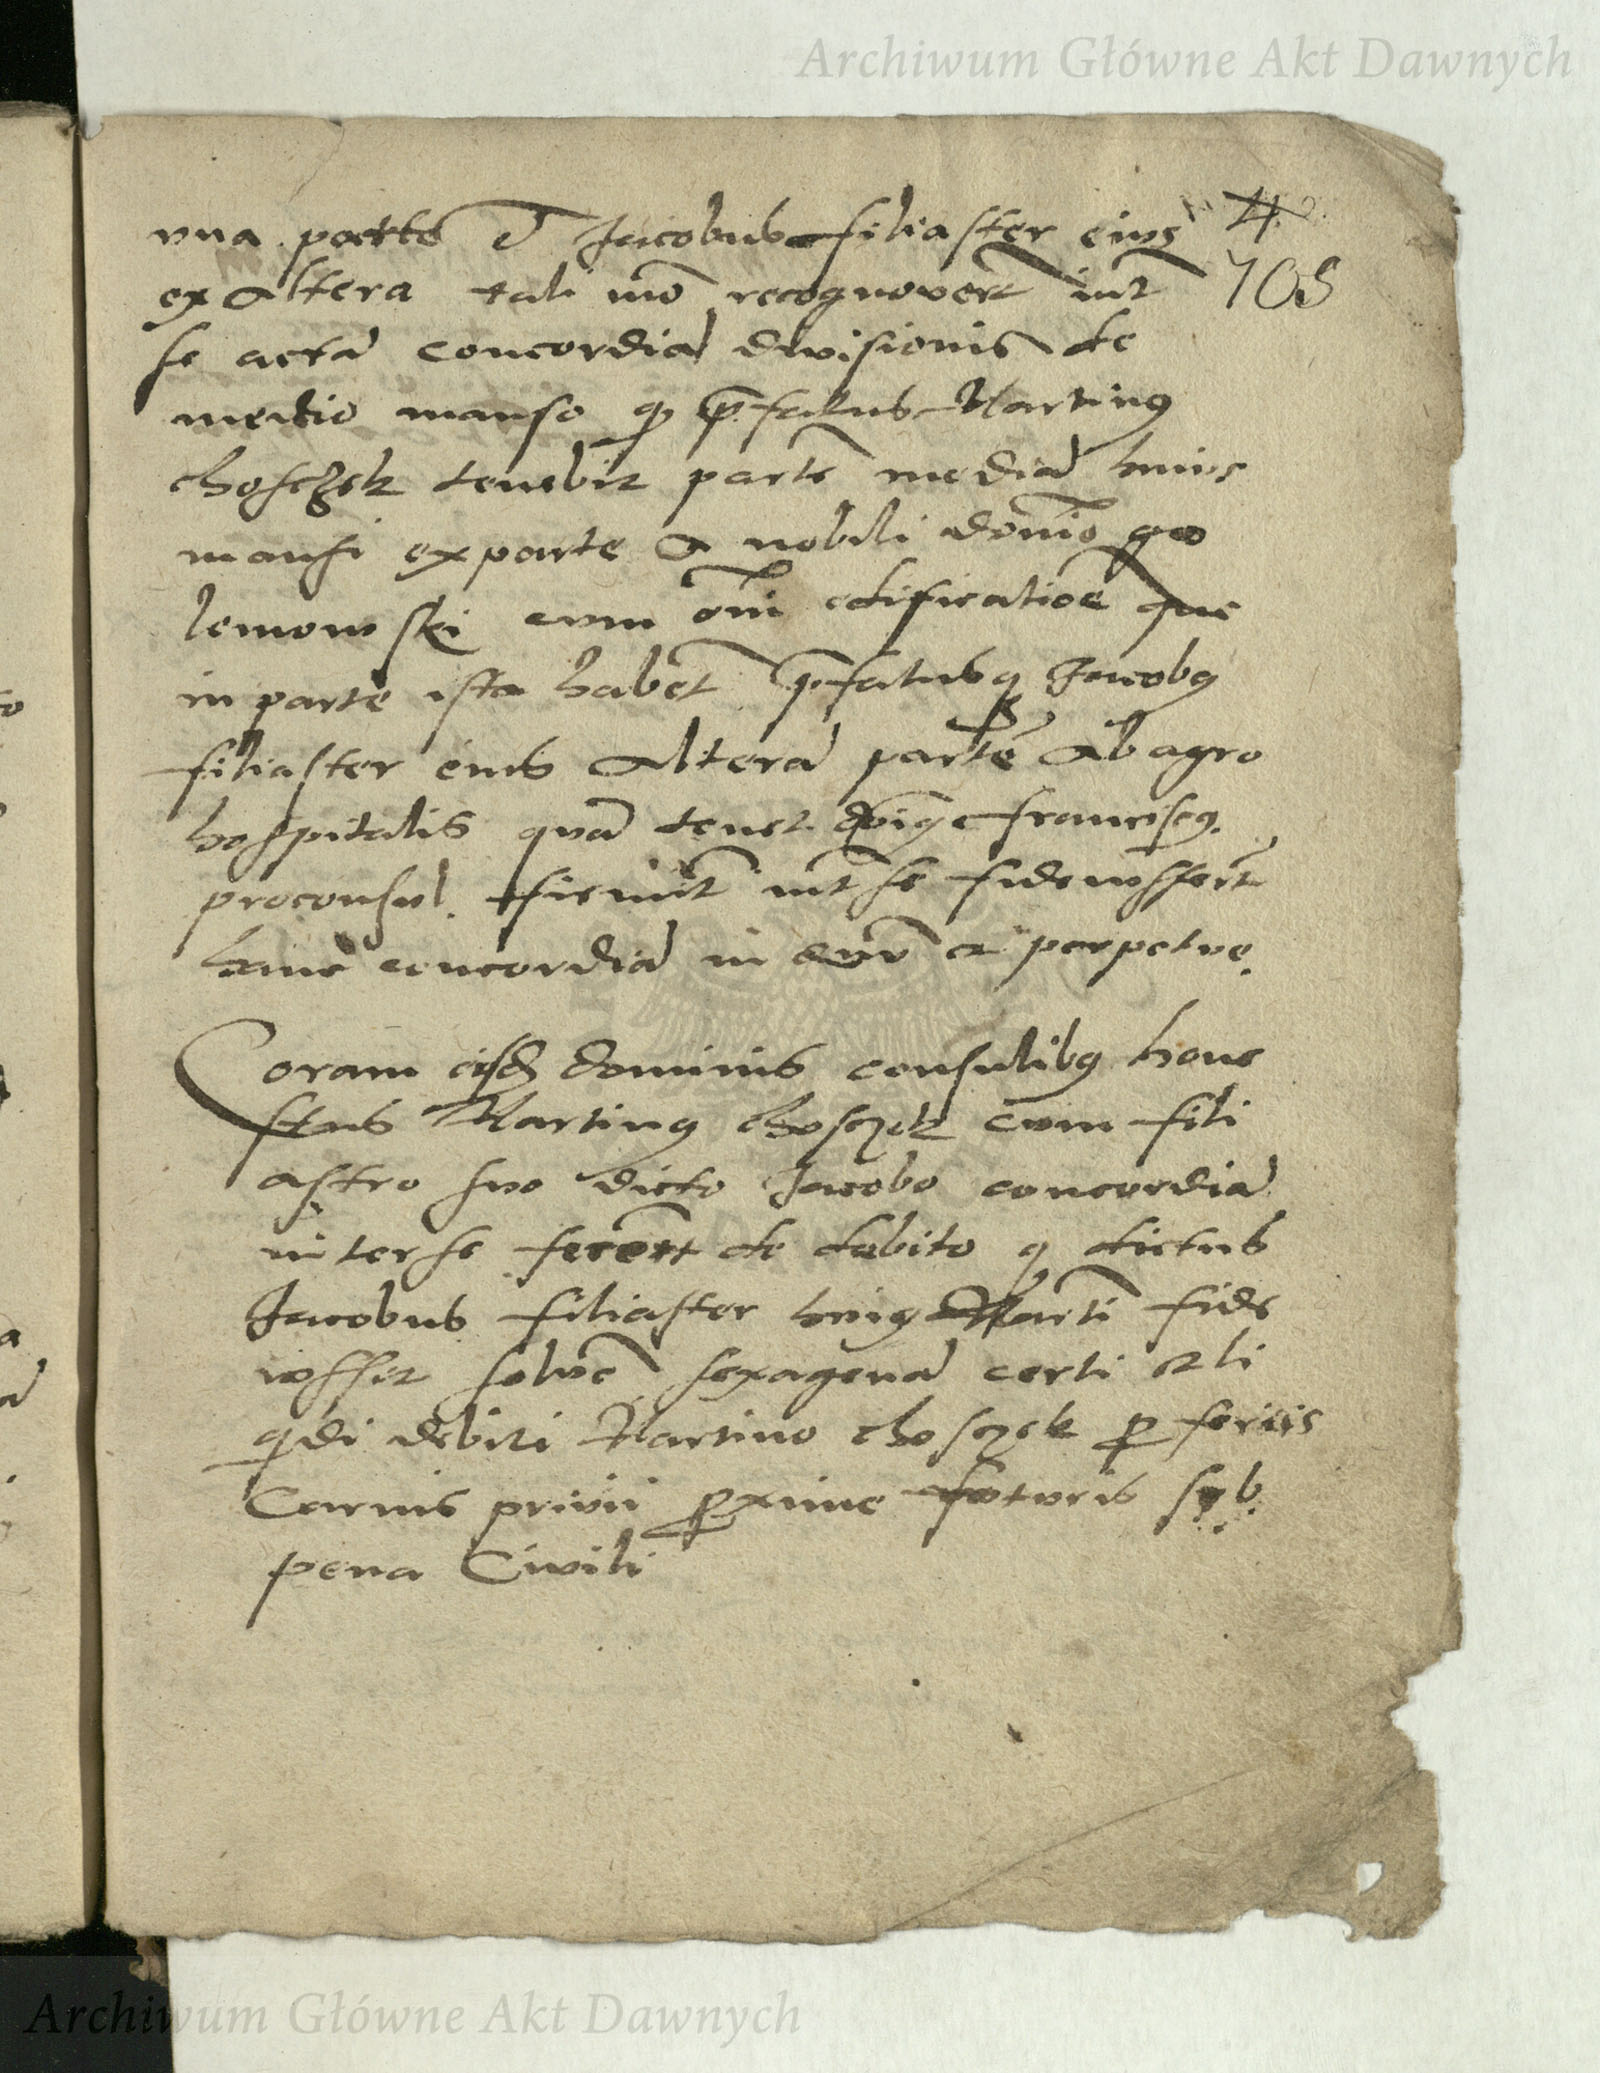 Archiwum Główne Akt Dawnych
vna parte et Jacobus filiaster eius
105
ex altera tali mo recognovert int
se acta concordia divisionis de
medio manso q p̄fatus Martinus
choscζek tenebit parte media huius
mansi ex parte a nobili domio go
lemowski cum omi edificatioe que
in parte ista habet p̄fatusq Jacobus
filiaster eius altera parte ab agro
hospitalis qua tenet franciscus
proconsul. firmit int se fideiusſert
hanc concordia in evv et perpetue.
Coram eisd dominis consulibus hone
stus Martinus choscζek cum fili
astro suo dicto Jacobo concordia
inter se fecert de debito q dictus
Jacobus filiaster huius Marti fide
iussit solve sexagena certi et li
qdi debiti Martino choscζek p feriis
Carnis privii proxime futuris sub
pena Civili
Archiwum Główne Akt Dawnych